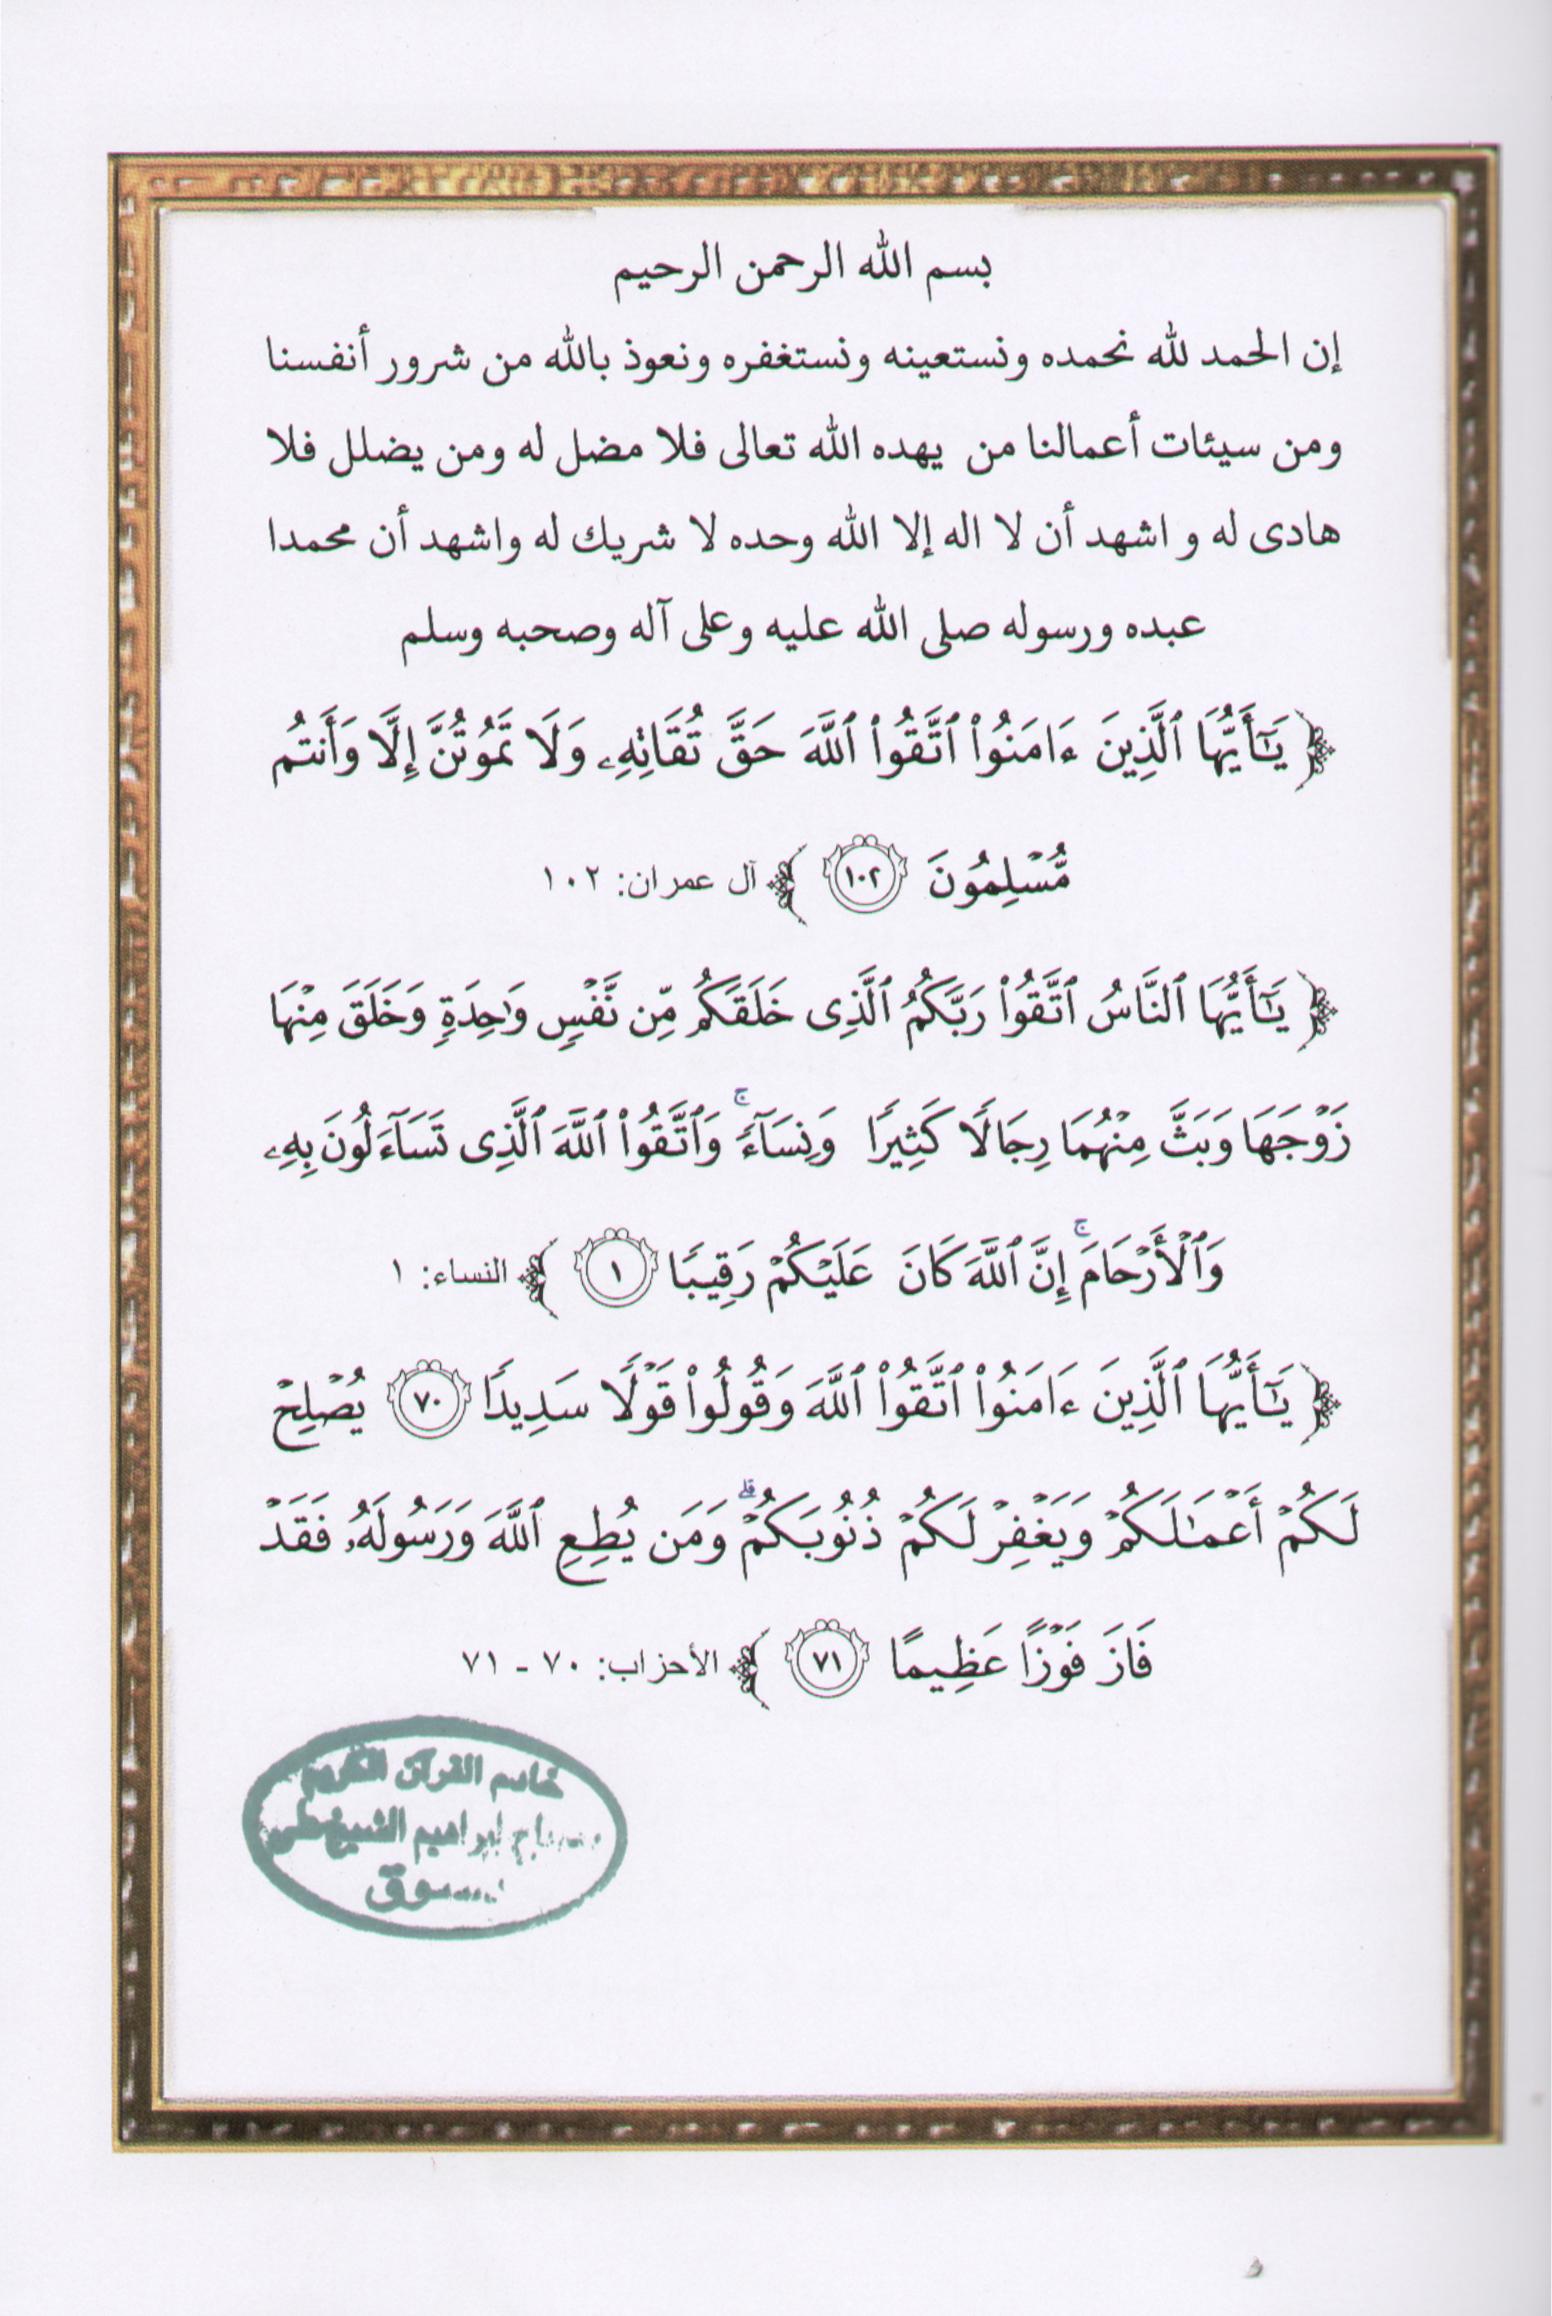 بسم الله الرحمن الرحيم
إن الحمد لله نحمده ونستعينه ونستغفره ونعوذ بالله من شرور أنفسنا
ومن سيئات أعمالنا من يهده الله تعالى فلا مضل له ومن يضلل فلا
هادى له و اشهد أن لا اله إلا الله وحده لا شريك له واشهد أن محمدا
عبده ورسوله صلى الله عليه وعلى آله وصحبه وسلم
﴿ يَٰٓأَيُّهَا ٱلَّذِينَ ءَامَنُوا۟ ٱتَّقُوا۟ ٱللَّهَ حَقَّ تُقَاتِهِۦ وَلَا تَمُوتُنَّ إِلَّا وَأَنتُم
مُّسْلِمُونَ ١٠٢ ﴾ آل عمران: ١٠٢
﴿ يَٰٓأَيُّهَا ٱلنَّاسُ ٱتَّقُوا۟ رَبَّكُمُ ٱلَّذِى خَلَقَكُم مِّن نَّفْسٍ وَٰحِدَةٍ وَخَلَقَ مِنْهَا
زَوْجَهَا وَبَثَّ مِنْهُمَا رِجَالًا كَثِيرًا وَنِسَآءً ۚ وَٱتَّقُوا۟ ٱللَّهَ ٱلَّذِى تَسَآءَلُونَ بِهِۦ
وَٱلْأَرْحَامَ ۚ إِنَّ ٱللَّهَ كَانَ عَلَيْكُمْ رَقِيبًا ١ ﴾ النساء: ١
﴿ يَٰٓأَيُّهَا ٱلَّذِينَ ءَامَنُوا۟ ٱتَّقُوا۟ ٱللَّهَ وَقُولُوا۟ قَوْلًا سَدِيدًا ٧٠ يُصْلِحْ
لَكُمْ أَعْمَٰلَكُمْ وَيَغْفِرْ لَكُمْ ذُنُوبَكُمْ ۗ وَمَن يُطِعِ ٱللَّهَ وَرَسُولَهُۥ فَقَدْ
فَازَ فَوْزًا عَظِيمًا ٧١ ﴾ الأحزاب: ٧٠ - ٧١
خادم القرآن الكريم
إبراهيم الشيخ